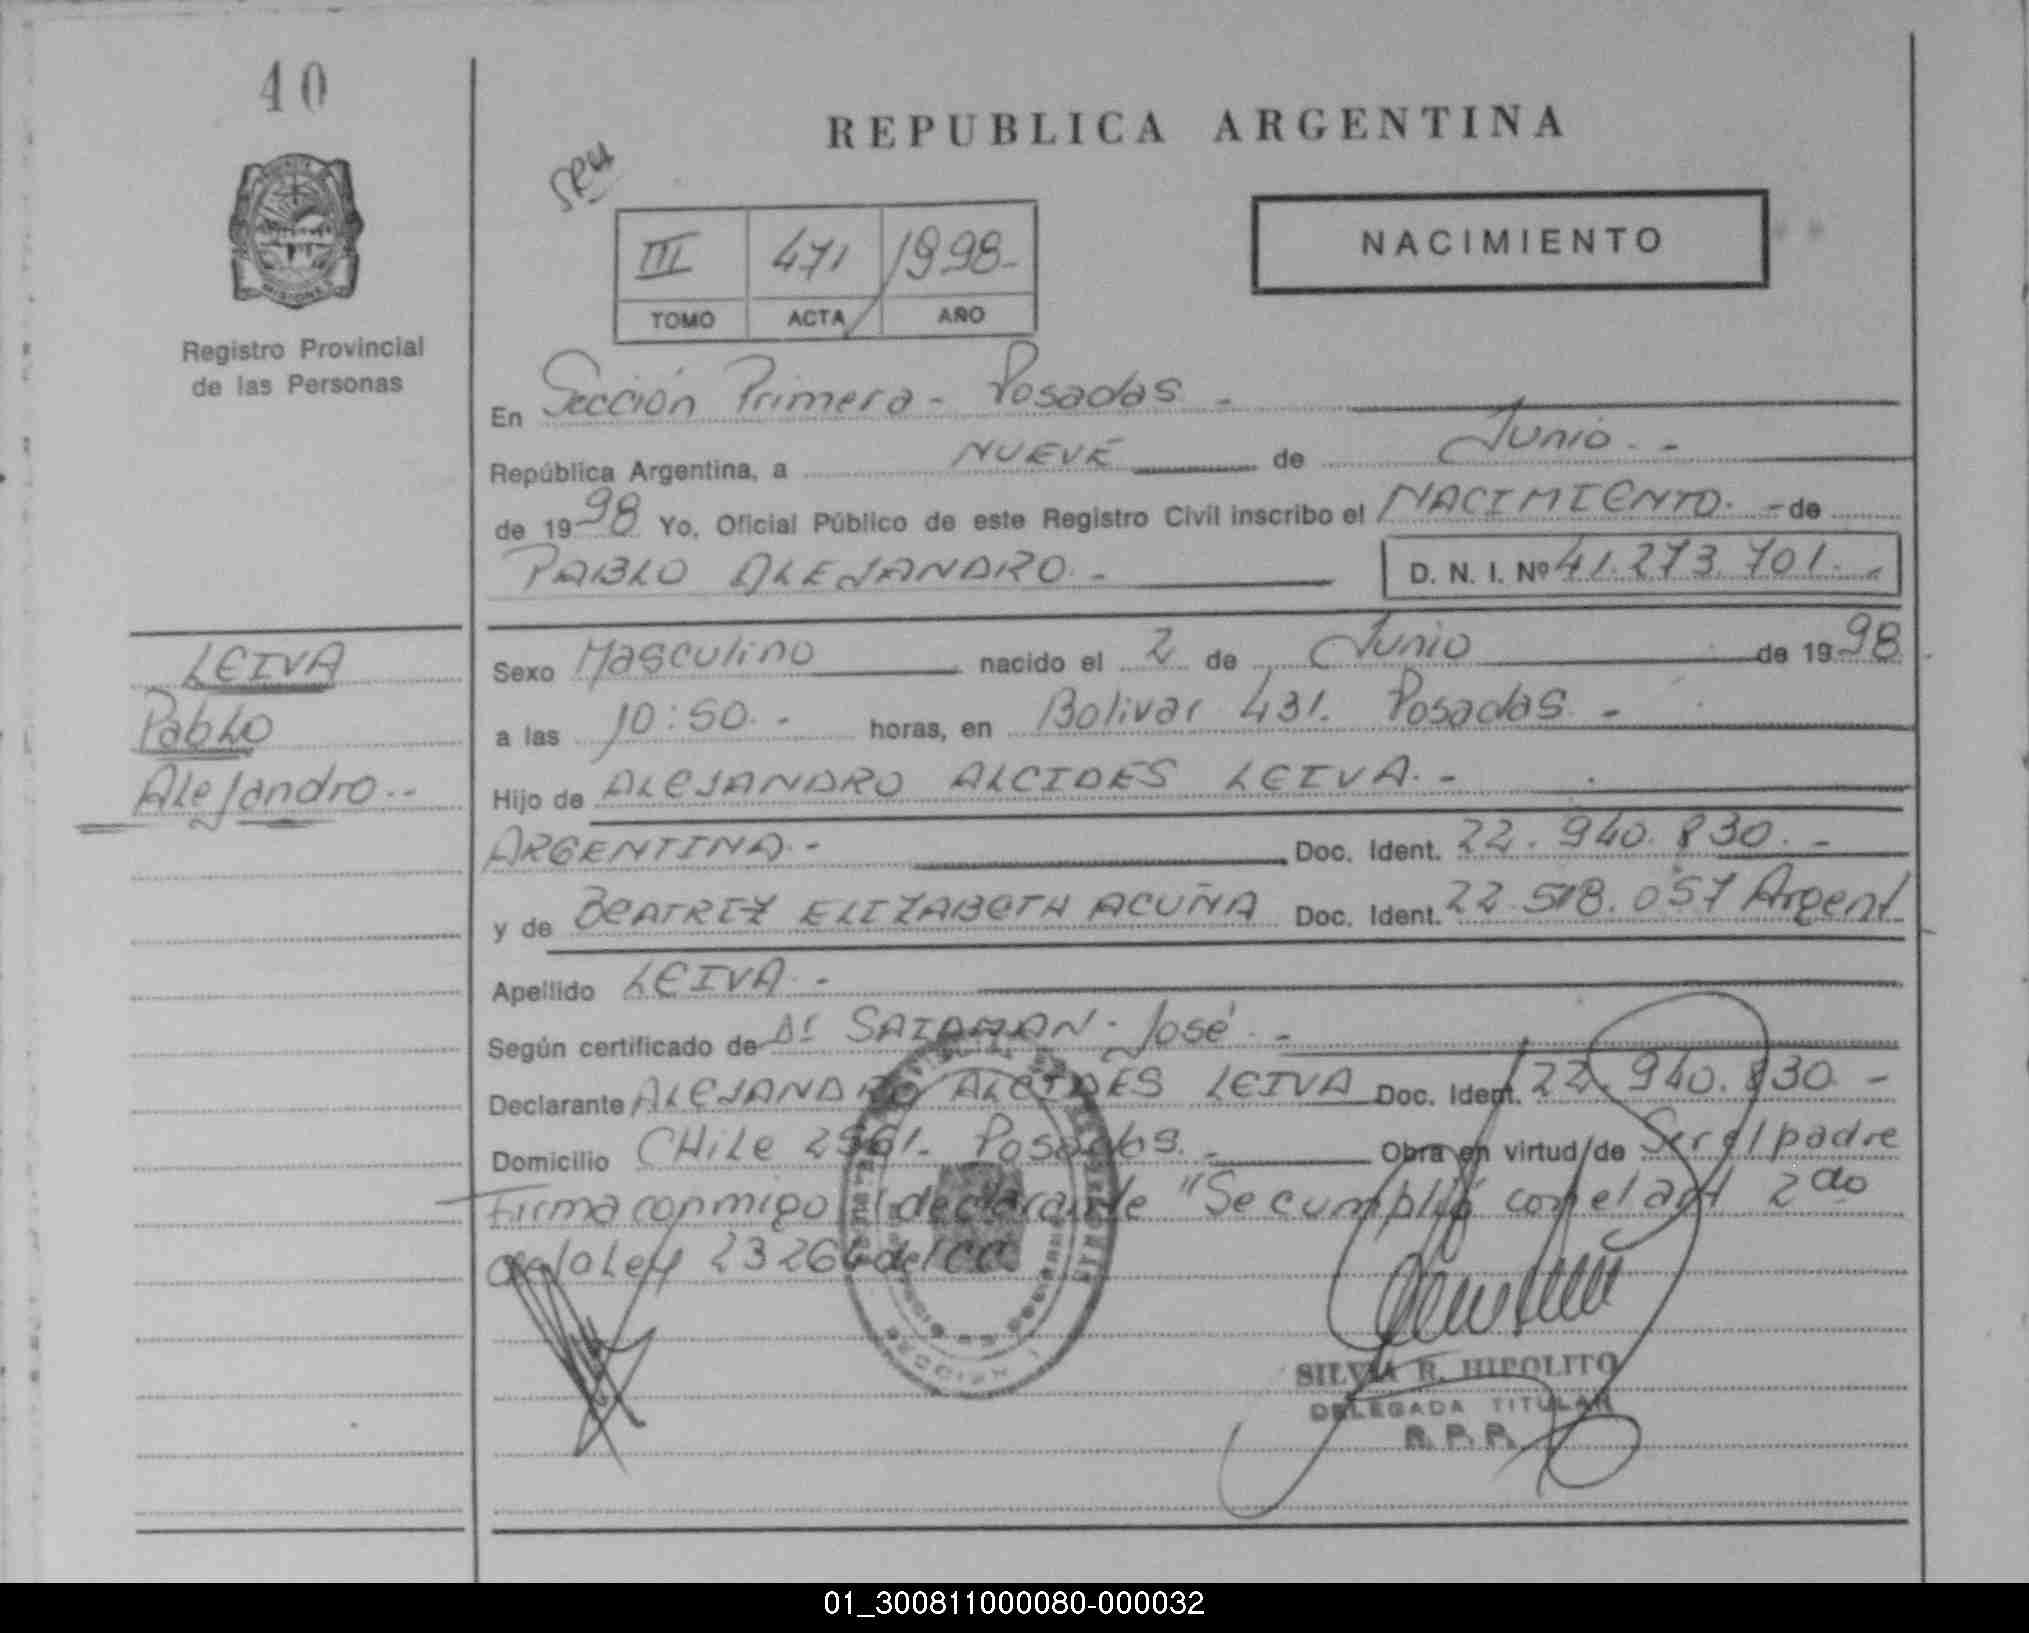 40
REPUBLICA ARGENTINA
NACIMIENTO
III 471 1998-
TOMO ACTA AÑO
MISIONES
Registro Provincial
de las Personas
En Sección Primera - Posadas -
República Argentina, a NUEVE de Junio. -
de 1998 Yo, Oficial Público de este Registro Civil inscribo el NACIMIENTO. - de
PABLO ALEJANDRO. -
D. N. I. Nº 41.273.701. -
LEIVA
Pablo
Alejandro. -
Sexo Masculino nacido el 2 de Junio de 1998
a las 10:50. - horas, en Bolivar 431. Posadas. -
Hijo de ALEJANDRO ALCIDES LEIVA. -
ARGENTINA. - Doc. Ident. 22.940.830. -
y de BEATRIZ ELIZABETH ACUÑA Doc. Ident. 22.518.057 Argent
Apellido LEIVA. -
Según certificado de Dr José. -
Declarante ALEJANDRO ALCIDES LEIVA Doc. Ident. 22.940.830. -
Domicilio CHile Posadas. - Obra en virtud de Ser el padre
Firma conmigo el declarante "Se cumplió con el art 2do
de la Ley 23264 del CC
SECCION 1
SILVIA R. HIPOLITO
DELEGADA TITULAR
R. P. P.
01_300811000080-000032